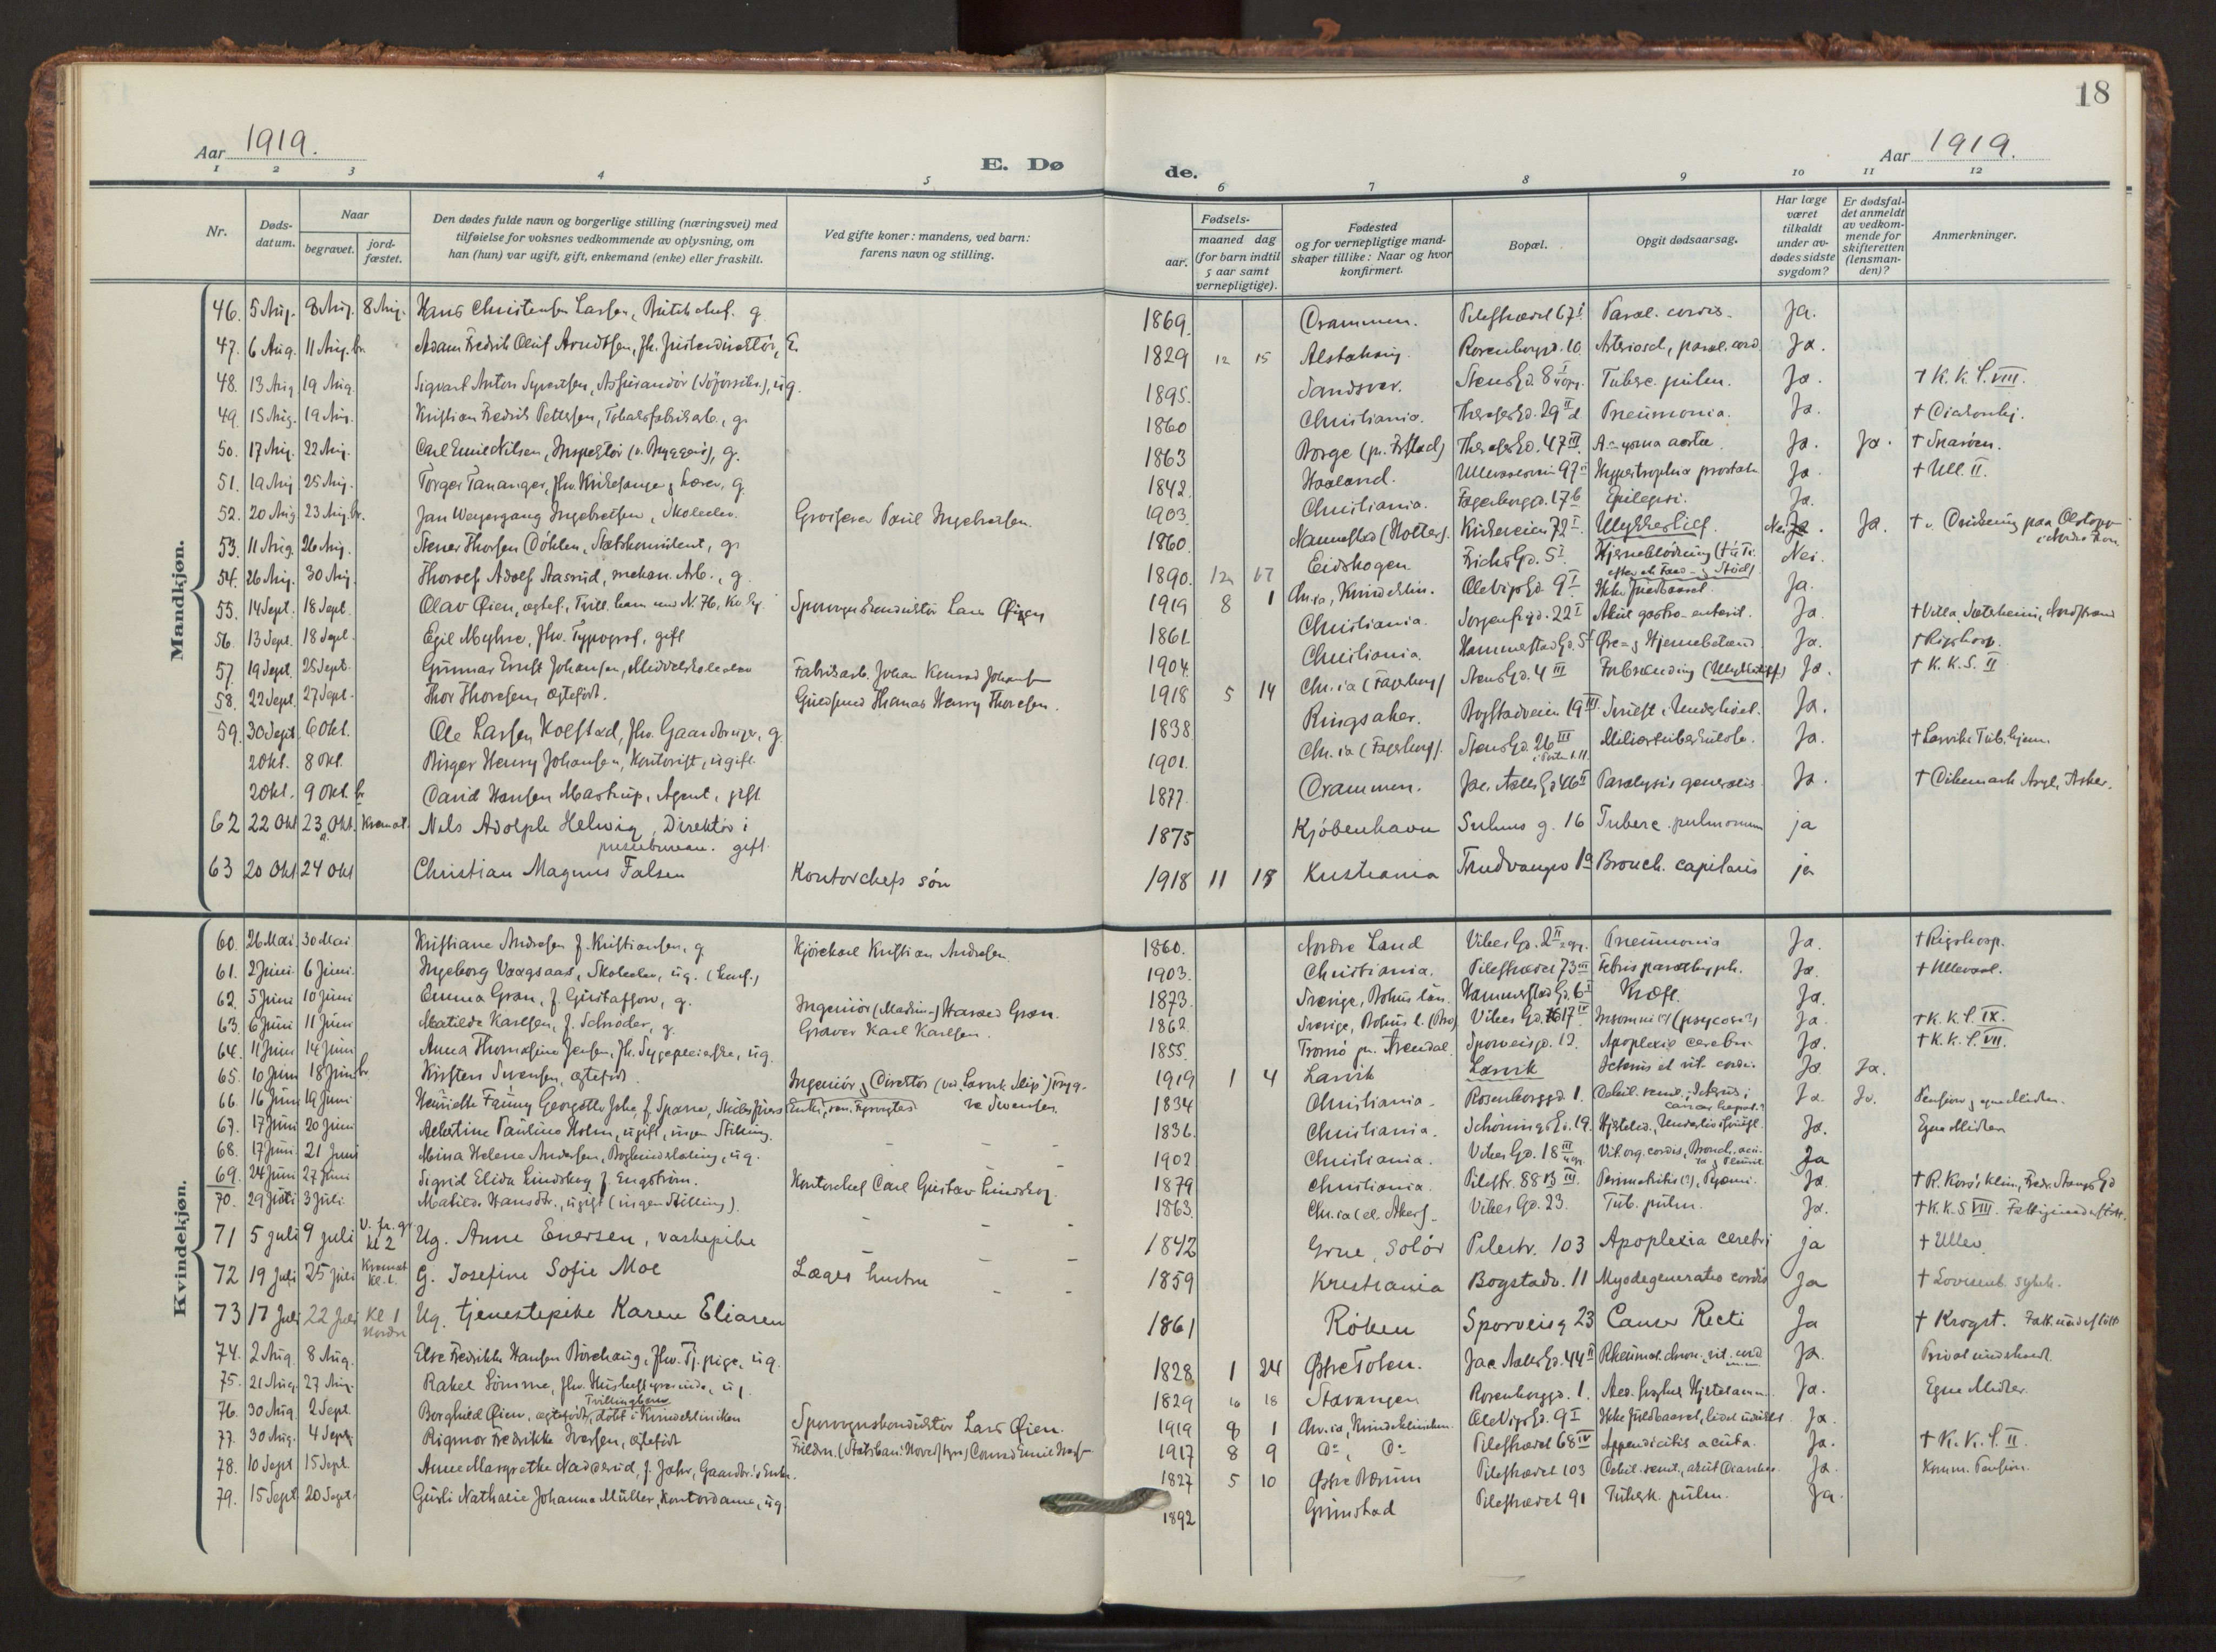 18
Aar 1919.
E. Døde.
Aar 1919.
1 2 3 4 5 6 7 8 9 10 11 12
Nr.
Døds-datum.
Naar
begravet.
jord-fæstet.
Den dødes fulde navn og borgerlige stilling (næringsvei) med
tilføielse for voksnes vedkommende av oplysning, om
han (hun) var ugift, gift, enkemand (enke) eller fraskilt.
Ved gifte koner: mandens, ved barn:
farens navn og stilling.
Fødsels-
aar.
maaned dag
(for barn indtil
5 aar samt
vernepligtige).
Fødested
og for vernepligtige mand-
skaper tillike: Naar og hvor
konfirmert.
Bopæl.
Opgit dødsaarsag.
Har læge
været
tilkaldt
under av-
dødes sidste
sygdom?
Er dødsfal-
det anmeldt
av vedkom-
mende for
skifteretten
(lensman-
den)?
Anmerkninger.
Mandkjøn.
46. 5 Aug. 8 Aug. 8 Aug. Hans Christensen Larsen, g. 1869. Drammen. Pilestrædet 67 I Paral. cordis. Ja.
47. 6 Aug. 11 Aug. br. Adam Fredrik Oluf Arndtsen, E. 1829 12 15 Alstahaug. Rosenborggd. 10. Arterioscl., paral. cord. Ja.
48. 13 Aug. 19 Aug. Sigvart Anton Syvertsen, Assurandør, ug. 1895. Sandsvær. Stens Gd. 8 Tuberc. pulm. Ja. † K. K. S. VIII.
49. 15 Aug. 19 Aug. Kristian Fredrik Pettersen, Tobaksfabrikarb., g. 1860 Christiania. Theresesgd. 29 II Pneumonia. Ja. † Diakonhj.
50. 17 Aug. 22 Aug. Carl Emil Nilsen, Inspektør, g. 1863 Borge Theresesgd. 47 III. aortæ Ja. Ja. † Snarøen.
51. 19 Aug. 25 Aug. Torger Tananger, fhv. Kirkesanger og Lærer, g. 1842. Haaland. Ullevaalsveien 97 II Hypertrophia prostatæ Ja. † Ull. II.
52. 20 Aug. 23 Aug. br. Jan Weyergang Ingebretsen, Skoleelev. Grosserer Paul Ingebretsen. 1903. Christiania. Fagerborggd. 17 b Epilepsi. Ja.
53. 11 Aug. 26 Aug. Stener Thorsen Døhlen, g. 1860. Nannestad (Holter). Kirkeveien 72 I. Ulykkestilf. Nei. Ja. † v. Drukning paa
54. 26 Aug. 30 Aug. Thorolf Adolf Aasrud, mekan. Arb., g. 1890. 12 17 Eidskogen. Frichs Gd. 5 I. Hjerneblødning Nei.
55. 14 Sept. 18 Sept. Olav Øien, Sporvognskonduktør Lars Øien 1919 8 1 Chr.ia, Kvindeklin. Ole Vigs Gd. 9 I Ikke fuldbaaret. Ja.
56. 13 Sept. 18 Sept. Egil Myhre, fhv. Typograf, gift 1861. Christiania. Sorgenfrigd. 22 I Akut gastro-enterit. Ja. † Villa Nordstrand
57. 19 Sept. 25 Sept. Gunnar Ernst Johansen, Middelskoleelev Fabrikarb. Johan Konrad Johansen 1904. Christiania. Hammerstads Gd. 5 Øre- og Hjernebetænd. Ja. † Rigshosp.
58. 22 Sept. 27 Sept. Thor Thoresen, ægtefødt. Guldsmed Thomas Henry Thoresen. 1918 5 14 Chr.ia (Fagerborg) Stens Gd. 4 III Forbrænding (Ulykkestilf.) Ja. † K. K. S. II
59. 30 Sept. 6 Okt. Ole Larsen Kolstad, fhv. Gaardbruger, g. 1838. Ringsaker. Bogstadveien 19 III. Svulst i Underlivet. Ja.
2 Okt. 8 Okt. Birger Henry Johansen, Kontorist, ugift. 1901. Chr.ia (Fagerborg). Stens Gd. 26 III Miliærtuberkulose. Ja. † Larvik Tub. hjem.
2 Okt. 9 Okt. br David Hansen Mastrup, Agent, gift. 1877. Drammen. Jac. Aalls Gd. 46 II Paralysis generalis Ja. † Dikemark Asyl, Asker.
62 22 Okt 23 Okt. Kremat. Nils Adolph Helwig, Direktør i
pressebureau. gift. 1875 Kjøbenhavn Suhms g. 16 Tuberc. pulmonum ja
63 20 Okt 24 Okt Christian Magnus Falsen Kontorchefs søn 1918 11 18 Kristiania Trudvangv 1a Bronch. capilaris ja
Kvindekjøn.
60. 26 Mai. 30 Mai Kristiane Andresen f. Kristiansen, g. Kjørekarl Kristian Andresen. 1860. Nordre Land Vibes Gd. 2 II Pneumonia Ja. † Rigshosp.
61. 2 Juni. 6 Juni. Ingeborg Vaagsaas, Skoleelev, ug. 1903. Christiania. Pilestrædet 73 III Febris paratyph. Ja. † Ullevaal.
62. 5 Juni 10 Juni Emma Gran, f. Gustafson, g. Ingeniør (Maskin-) Harald Gran. 1873. Sverige, Bohus län. Hammerstads Gd. 6 I Kræft. Ja.
63. 6 Juni 11 Juni Matilde Karlsen, f. Schrøder, g. Graver Karl Karlsen. 1862. Sverige, Bohus l. Vibes Gd. 17 IV Insomni (?) (psycose?) Ja. † K. K. S. IX.
64. 11 Juni 14 Juni Anna Thomasine Jensen, fh. Sygepleierske, ug. 1855. Tromø pr. Arendal. Sporveisgd. 13. Apoplexia cerebri. Ja. † K. K. S. VII.
65. 10 Juni 18 Juni br. Kirsten Svensen, ægtefødt. Ingeniør, Direktør 1919 1 4 Larvik Larvik Icterus et vit. cordis. Ja Ja.
66. 16 Juni 19 Juni Henriette Fanny Georgette f. Sparre, Enke 1834 Christiania. Rosenborggd. 1. Debil. senil., Icterus; cancer hepat.? Ja. Ja. Pension, egne Midler.
67. 17 Juni 20 Juni Albertine Pauline Holm, ugift, ingen Stilling. 1836. Christiania. Schønings Gd. 19. Ja. Egne Midler
68. 17 Juni. 21 Juni Mina Helene Andersen, ug. 1902 Christiania. Vibes Gd. 18 III Vit. org. cordis, Bronch. Ja
69. 24 Juni 27 Juni Sigrid Elida Lindskog f. Engstrøm. Kontorchef Carl Gustav Lindskog. 1879 Christiania. Pilestr. 88 B III. Perimetritis (?), Pyæmi. Ja. † R. Kors' Klin., Fredr. Stangs Gd
70. 29 Juni 3 Juli. Matilde Hansdtr., ugift (ingen Stilling). 1863. Chr.ia Vibes Gd. 23. Tub. pulm. Ja. † K. K. S VIII. Fattigunderstøtt.
71 5 juli 9 juli V. fr. gr kl 2 Ug. Anne Enersen, vaskepike 1842 Grue, Solør Pilestr. 103 Apoplexia cerebri ja † Ullev.
72 19 Juli 25 juli Kremat kl. 1. G. Josefine Sofie Moe Læges hustru 1859 Kristiania Bogstadv. 11 Myodegeneratio cordis Ja † Lovisenb. sykeh.
73 17 Juli 22 Juli Kl 1 Nordre Ug. tjenestepike Karen Eliasen 1861 Røken Sporveisg 23 Cancer Recti Ja † Krogst. Fatt.understøtt
74. 2 Aug. 8 Aug. Else Fredrikke Hansen Børehaug, fhv. Tj. pige, ug. 1828 1 24 Østre Toten. Jac Aalls Gd. 44 II Rheumat. chron., vit. cord Ja. Privat underholdt.
75. 21 Aug. 27 Aug. Rakel Sømme, fhv. Husholderske, ug. 1829 10 18 Stavanger Rosenborggd. 1. Ja. Egne Midler.
76. 30 Aug. 2 Sept. Borghild Øien, ægtefødt, Trillingbarn døbt i Kvindekliniken Sporvognskonduktør Lars Øien. 1919 8 1 Chr.ia, Kvindekliniken. Ole Vigs Gd. 9 I Ikke fuldbaaret, Ja.
77. 30 Aug. 4 Sept. Rigmor Fredrikke Iversen, ægtefødt 1917 8 9 Do, Do Pilestrædet 68 IV Appendicitis acuta. Ja. † K. K. S. II.
78. 10 Sept 15 Sept. Anne Margrethe Nadderud, f. Jahr, Gaardbr.'s Enke. 1827 5 10 Østre Bærum Pilestrædet 103 Debil. senil., akut Diarrhee Ja. Komm. Pension.
79. 15 Sept 20 Sept. Gusli Nathalie Johanna Müller, Kontordame, ug. 1892 Grimstad Pilestrædet 91 Tuberk. pulm. Ja.